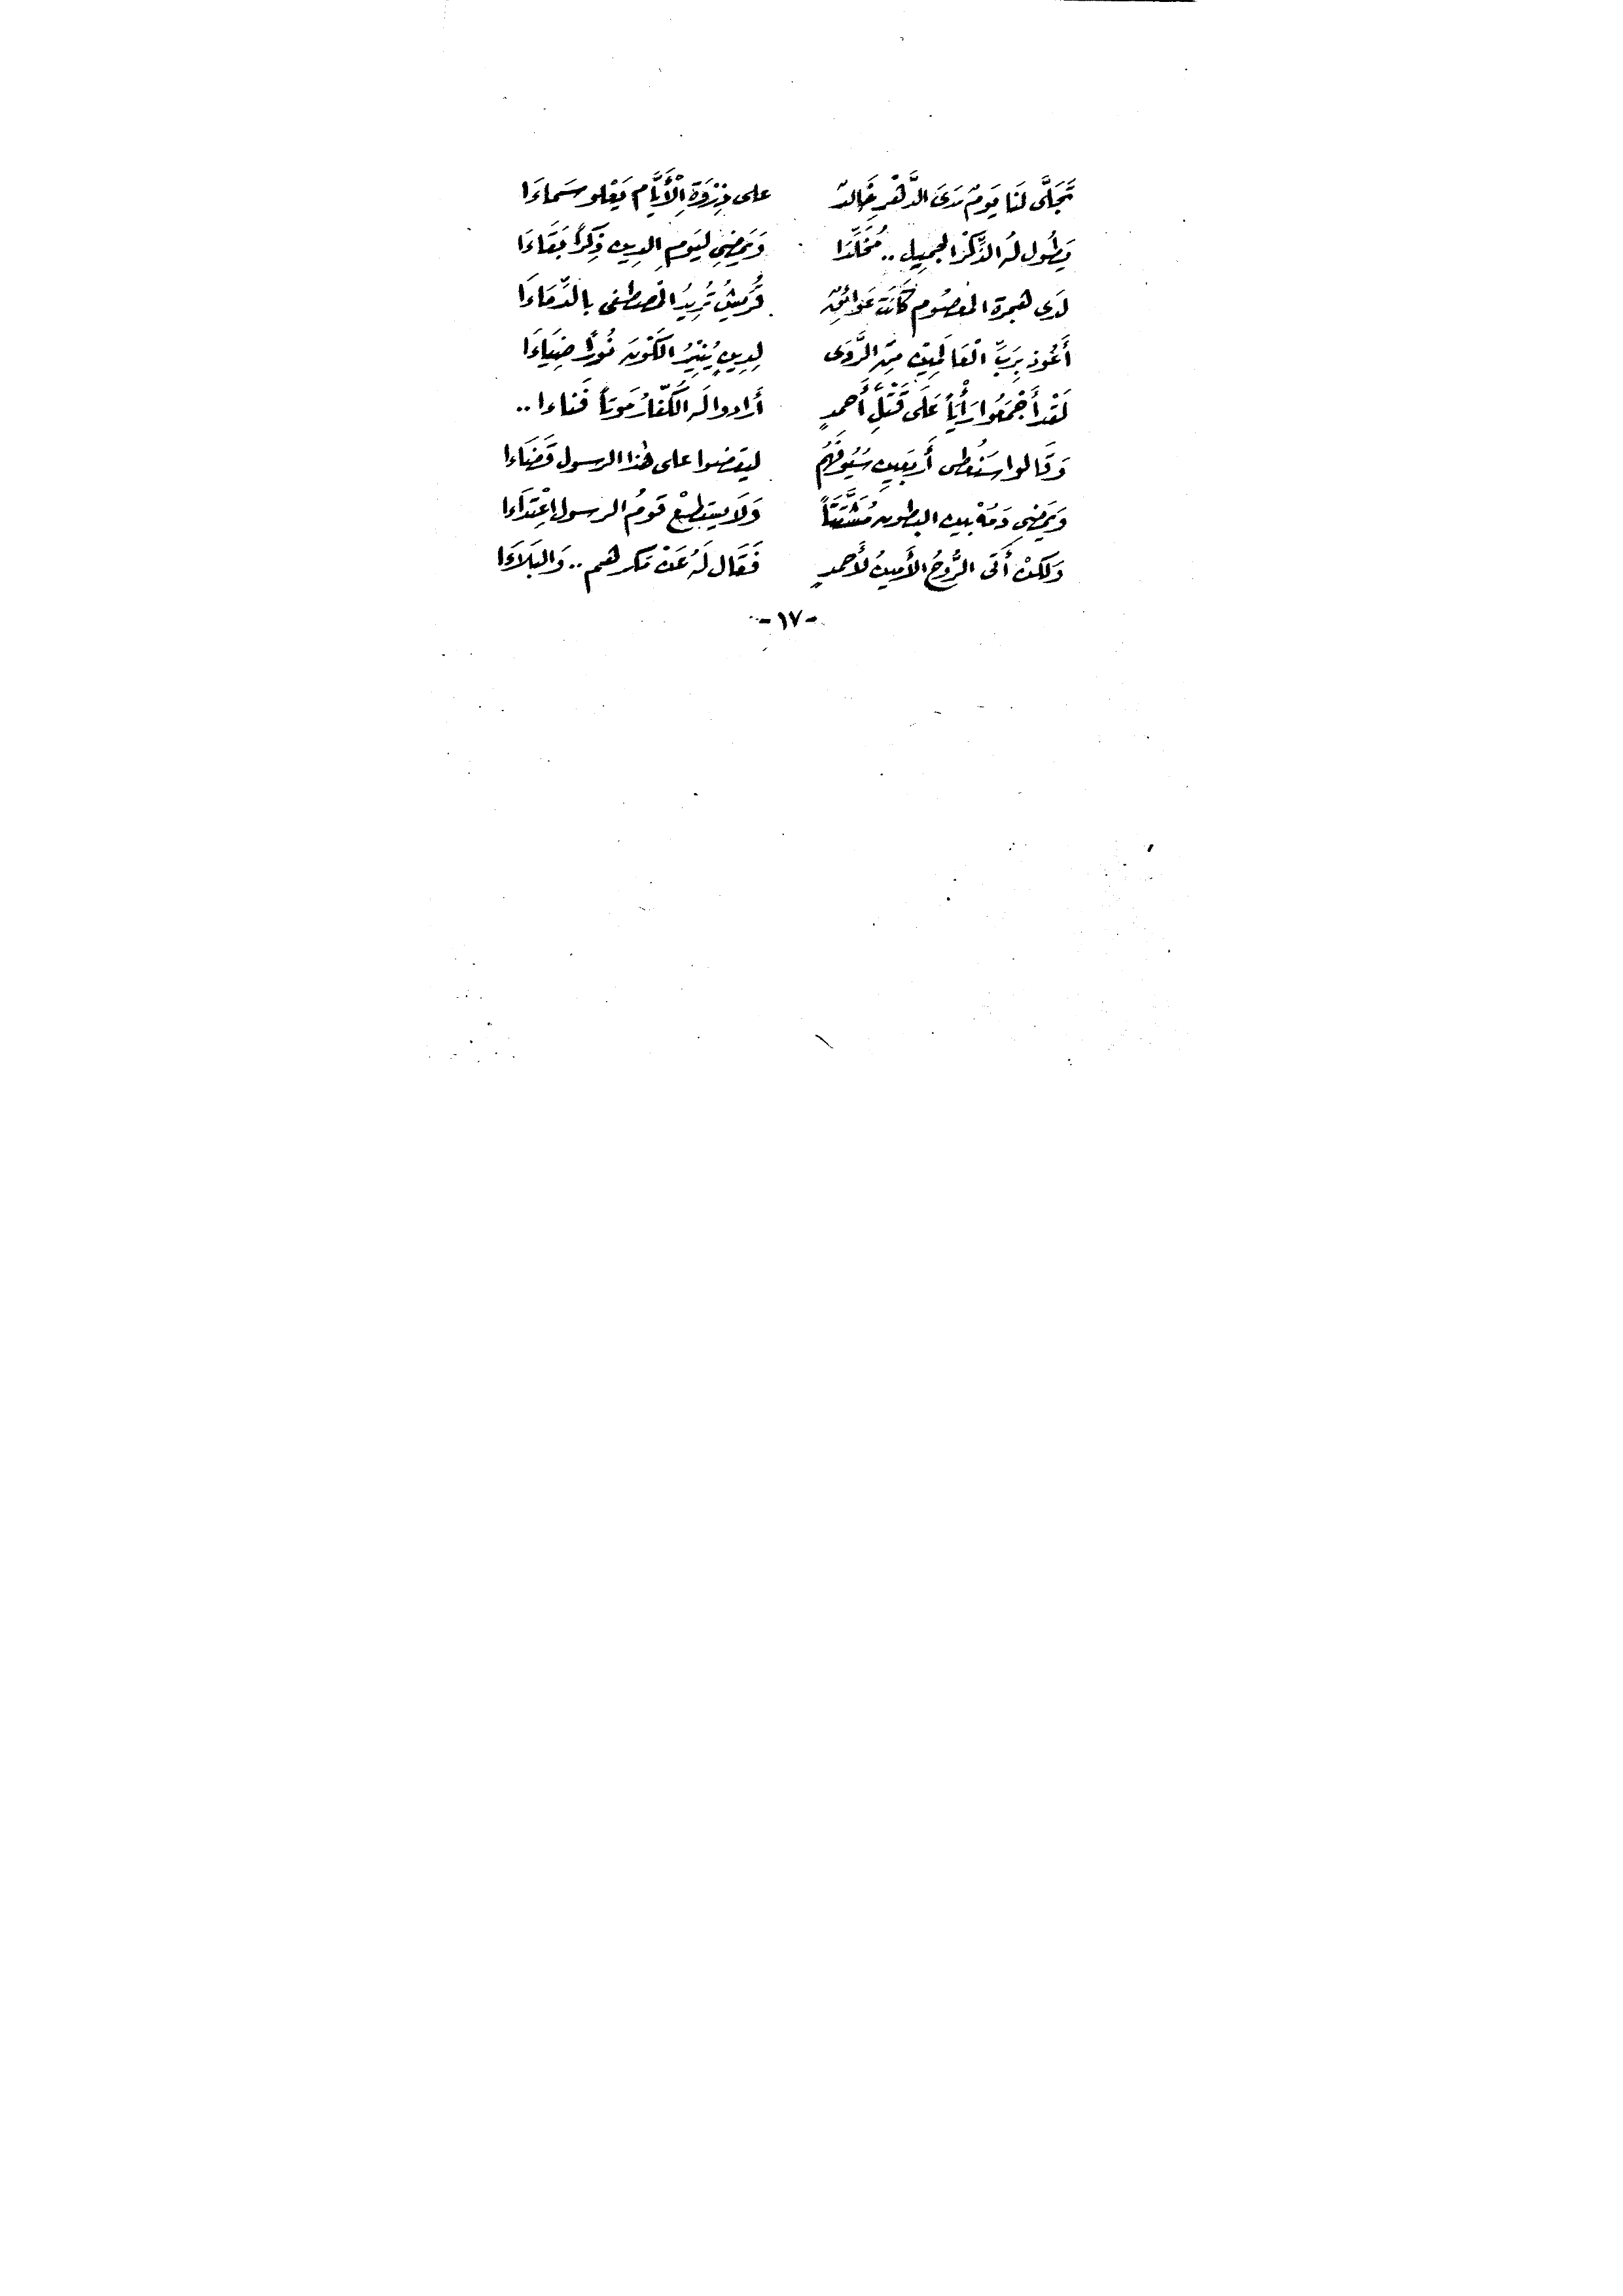 تَجَلَّى لَنَا يَومٌ مَدَى الدَّهْرِ خَالدٌ على ذِرْوَةِ الْأَيَّامِ يَعْلو سَماءَا
يَطُول لَهُ الذِّكْرُ الجميل .. مُخَلَّدَا وَيَمضِي لِيَومِ الدين ذِكراً بَقَاءَا
لَدَى هجرة المعصُوم كَانَت عَوَائِقٌ قُرَيشٌ تُرِيدُ المصطفى بالدِّمَاءَا
أَعُوذ بِرَبِّ الْعَالَمِينَ مِنَ الرَّدَى لِدِينٍ يُنِيرُ الكَونَ نُوراً ضِيَاءَا
لَقَد أَجْمَعُوا رَأْياً عَلَى قَتْلِ أَحمدٍ أرَادوا لَه الكُفّارُ مَوتاً فَناءا ..
وَقَالوا سَنُعطى أَربَعِين سُيُوفَهُم ليقضوا على هذا الرسول قَضَاءا
وَيَمضِي دَمُهْ بين البطون مُشَتَّتَاً وَلَا يستَطيعْ قَومُ الرسول اعْتِدَاءا
وَلكنْ أَتَى الرُّوحُ الأَمينُ لأَحمدٍ فَقَال لَهُ عَنْ مَكرهم .. وَالبَلاَءَا
-١٧-